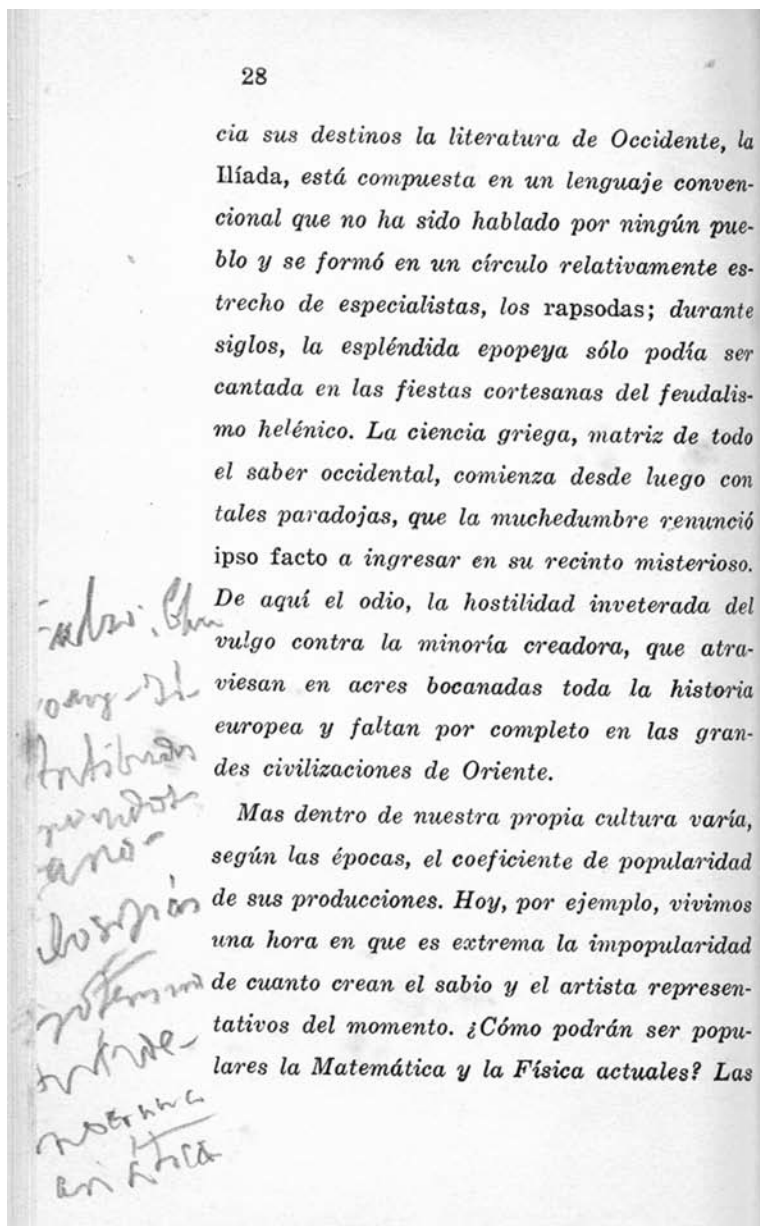 28
cia sus destinos la literatura de Occidente, la
Ilíada, está compuesta en un lenguaje conven-
cional que no ha sido hablado por ningún pue-
blo y se formó en un círculo relativamente es-
trecho de especialistas, los rapsodas; durante
siglos, la espléndida epopeya sólo podía ser
cantada en las fiestas cortesanas del feudalis-
mo helénico. La ciencia griega, matriz de todo
el saber occidental, comienza desde luego con
tales paradojas, que la muchedumbre renunció
ipso facto a ingresar en su recinto misterioso.
De aquí el odio, la hostilidad inveterada del
vulgo contra la minoría creadora, que atra-
viesan en acres bocanadas toda la historia
europea y faltan por completo en las gran-
des civilizaciones de Oriente.
Mas dentro de nuestra propia cultura varía,
según las épocas, el coeficiente de popularidad
de sus producciones. Hoy, por ejemplo, vivimos
una hora en que es extrema la impopularidad
de cuanto crean el sabio y el artista represen-
tativos del momento. ¿Cómo podrán ser popu-
lares la Matemática y la Física actuales? Las